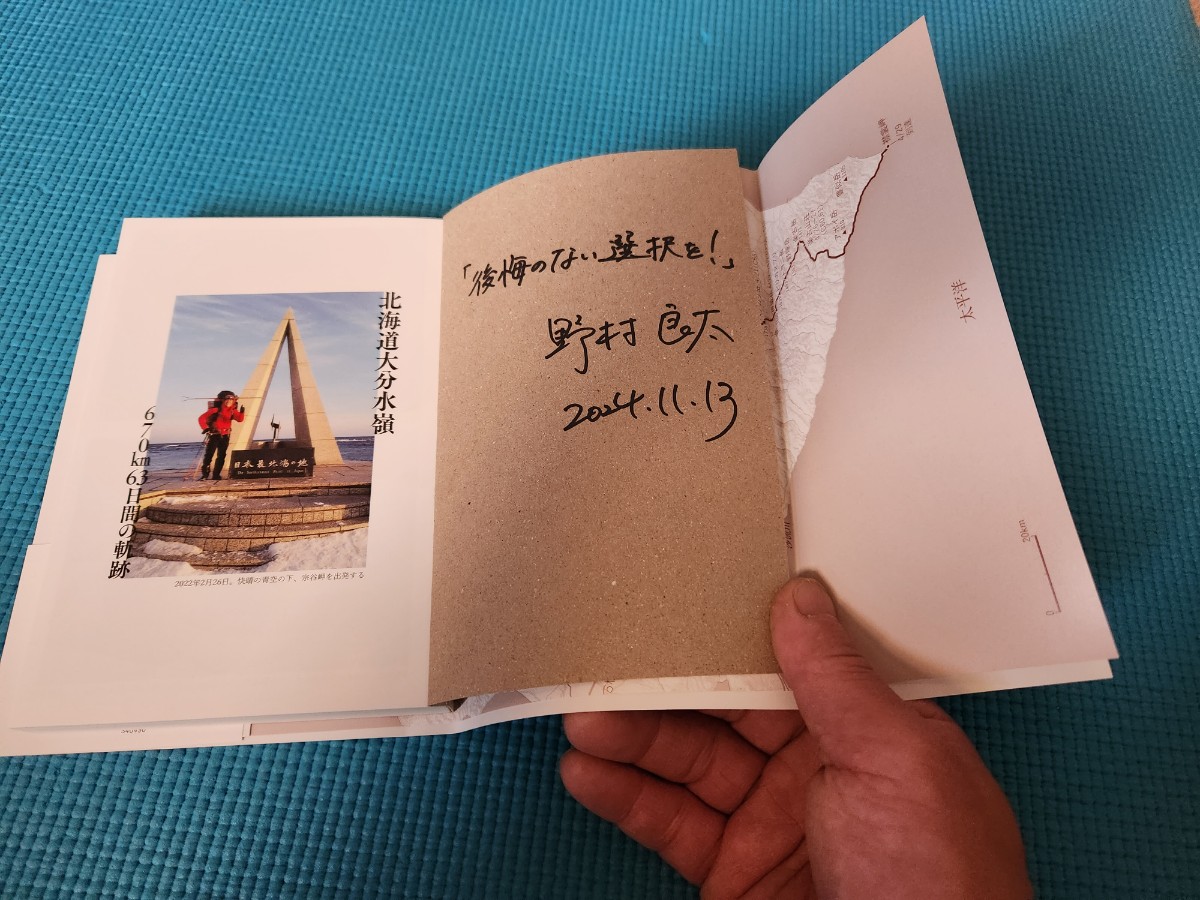 北海道大分水嶺
670km63日間の軌跡
日本最北端の地
The Northernmost Point in Japan
2022年2月26日。快晴の青空の下、宗谷岬を出発する
「後悔のない選択を!」
野村良太
2024.11.13
襟裳岬
太平洋
20km
0